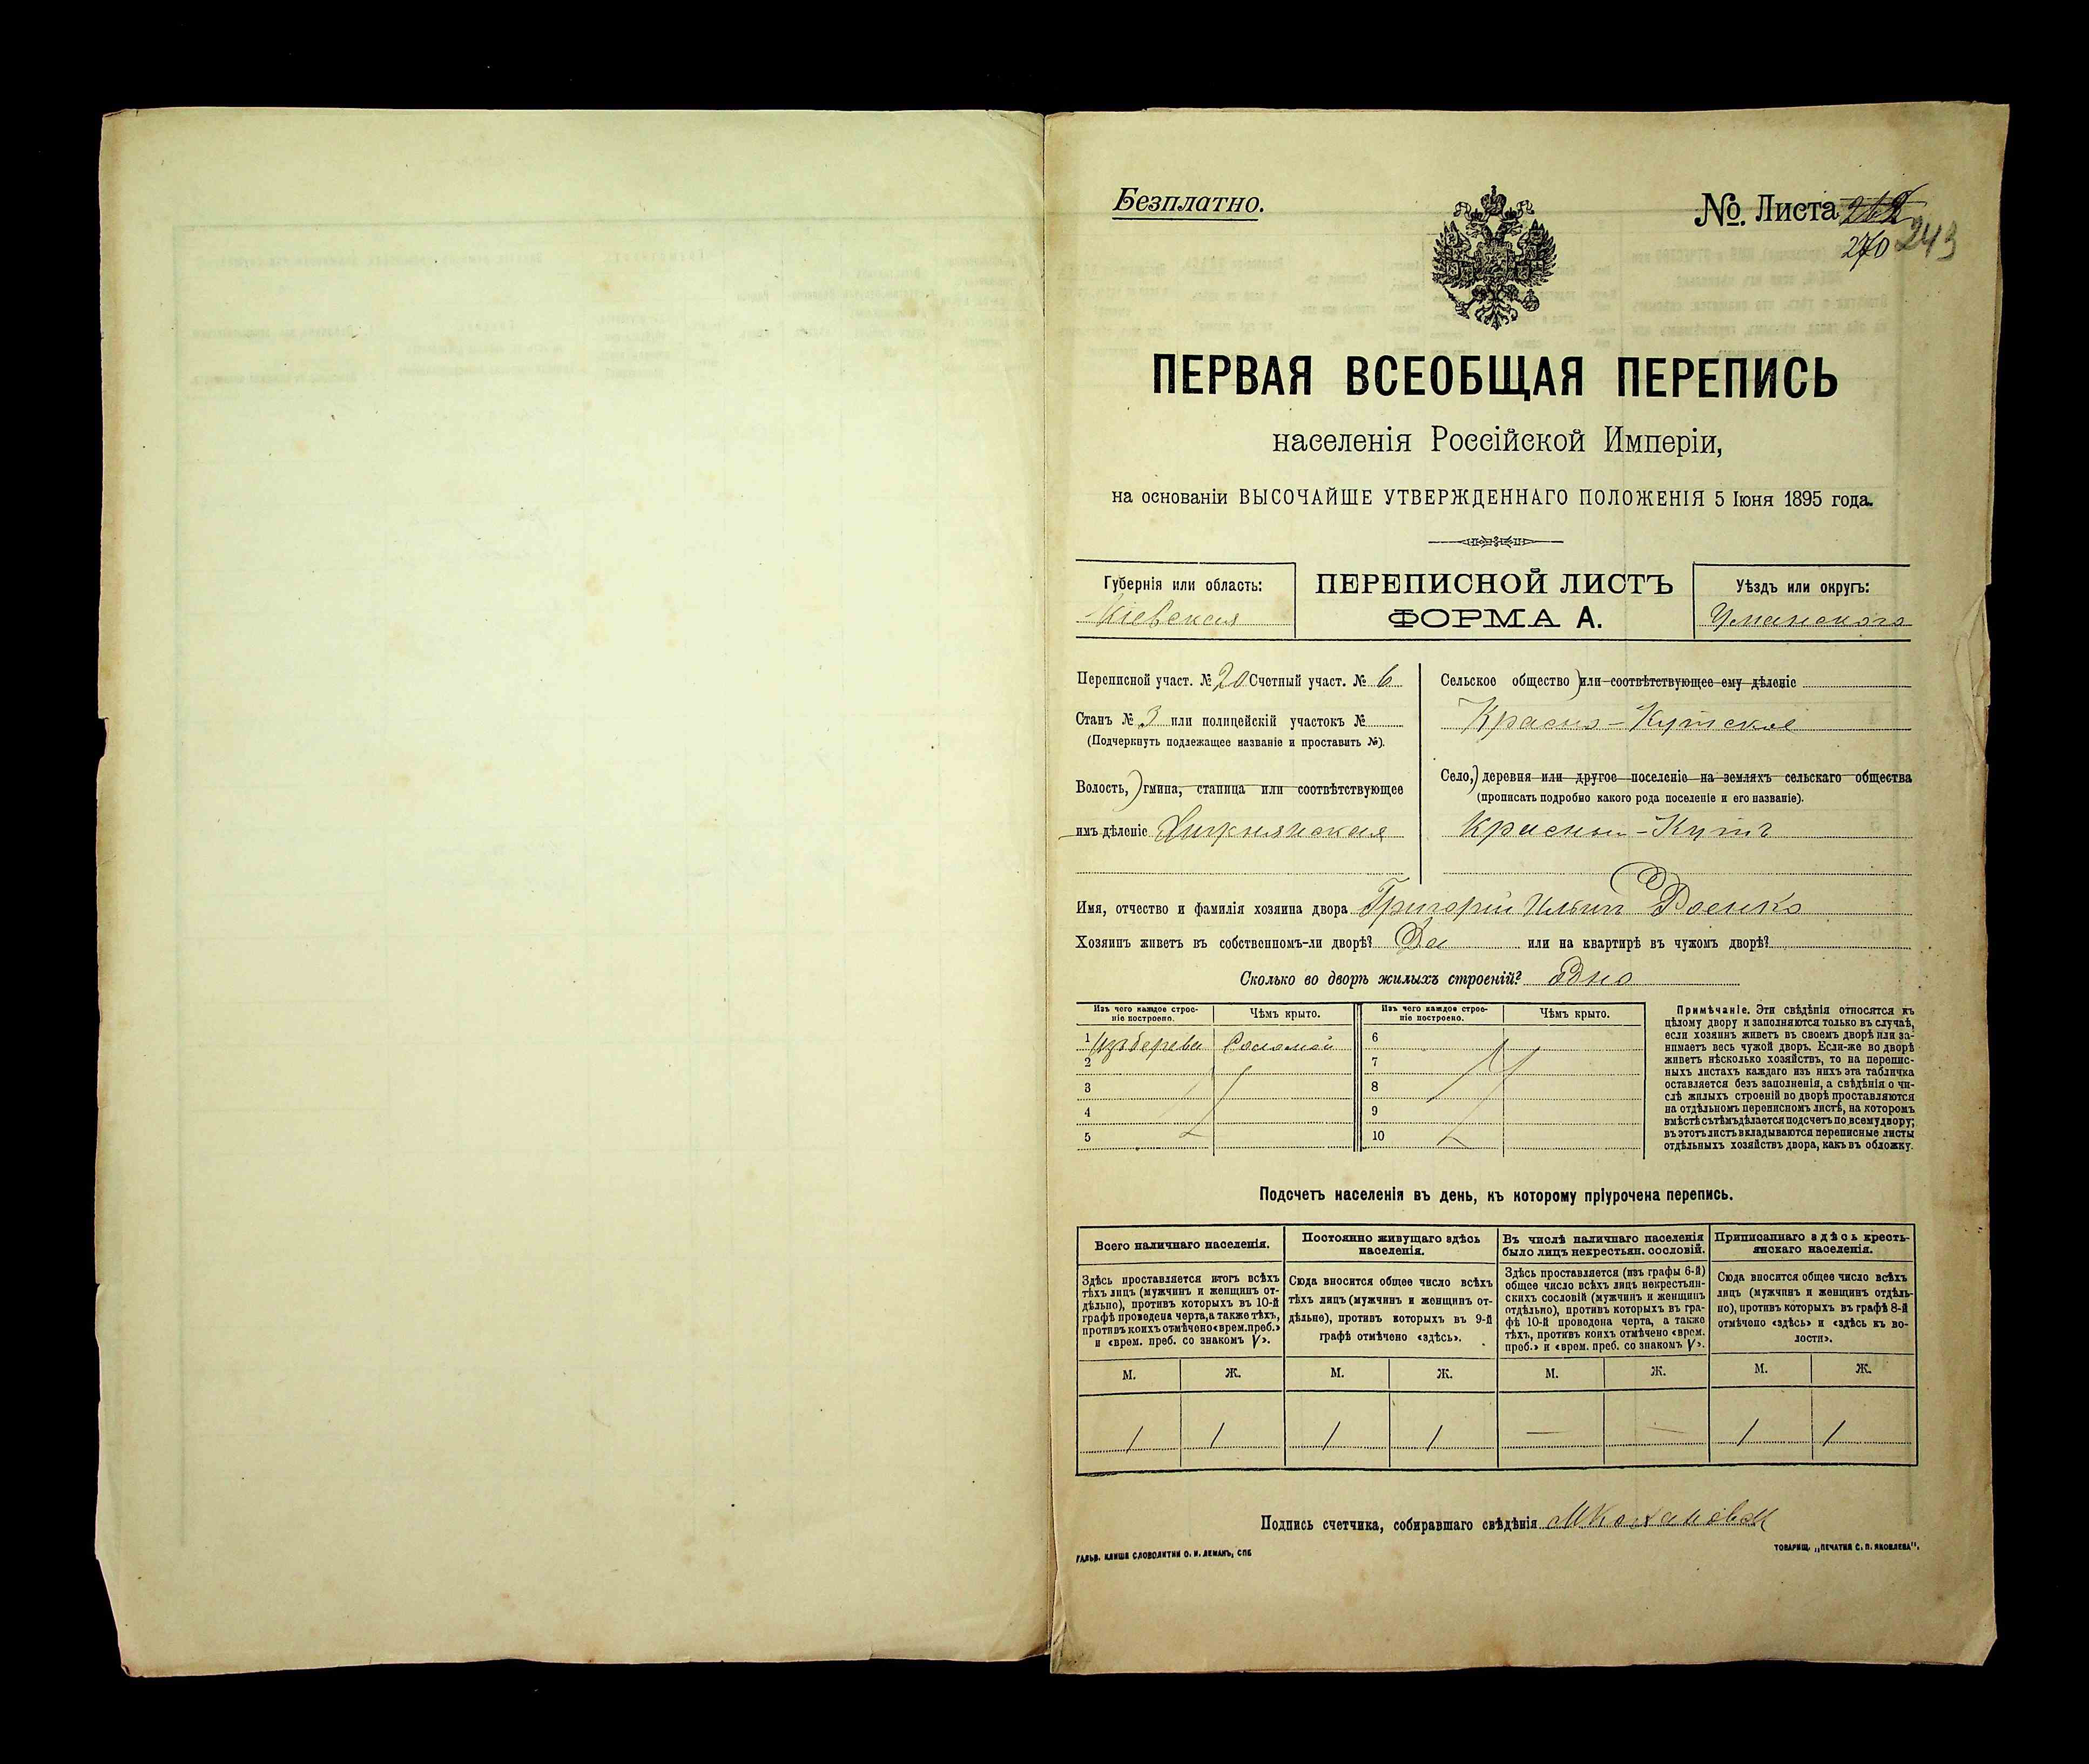 Безплатно.
№. Листа 262
270 243
ПЕРВАЯ ВСЕОБЩАЯ ПЕРЕПИСЬ
населенія Россійской Имперіи,
на основаніи ВЫСОЧАЙШЕ УТВЕРЖДЕННАГО ПОЛОЖЕНІЯ 5 Іюня 1895 года.
Губернія или область:
Кіевская
ПЕРЕПИСНОЙ ЛИСТЪ
ФОРМА А.
Уѣздъ или округъ:
Уманского
Переписной участ. № 20 Счетный участ. № 6
Станъ № 3 или полицейскій участокъ №
(Подчеркнуть подлежащее названіе и проставить №).
Волость,) гмина, станица или соотвѣтствующее
имъ дѣленіе
Сельское общество) или соотвѣтствующее ему дѣленіе
Красно-Кутское
Село,) деревня или другое поселеніе на земляхъ сельскаго общества
(прописать подробно какого рода поселеніе и его названіе).
Красный-Кутъ
Имя, отчество и фамилія хозяина двора Григорій Ильинъ
Хозяинъ живетъ въ собственномъ-ли дворѣ? Да или на квартирѣ въ чужомъ дворѣ?
Сколько во дворѣ жилыхъ строеній? Одно
Изъ чего каждое строе-
ніе построено.
Чѣмъ крыто.
Изъ чего каждое строе-
ніе построено.
Чѣмъ крыто.
1 Изъ дерева Соломой 6
2 7
3 8
4 9
5 10
Примѣчаніе. Эти свѣдѣнія относятся къ
цѣлому двору и заполняются только въ случаѣ,
если хозяинъ живетъ въ своемъ дворѣ или за-
нимаетъ весь чужой дворъ. Если-же во дворѣ
живетъ нѣсколько хозяйствъ, то на перепис-
ныхъ листахъ каждаго изъ нихъ эта табличка
оставляется безъ заполненія, а свѣдѣнія о чи-
слѣ жилыхъ строеній во дворѣ проставляются
на отдѣльномъ переписномъ листѣ, на которомъ
вмѣстѣ съ тѣмъ дѣлается подсчетъ по всему двору;
въ этотъ листъ вкладываются переписные листы
отдѣльныхъ хозяйствъ двора, какъ въ обложку.
Подсчетъ населенія въ день, къ которому пріурочена перепись.
Всего наличнаго населенія.
Здѣсь проставляется итогъ всѣхъ
тѣхъ лицъ (мужчинъ и женщинъ от-
дѣльно), противъ которыхъ въ 10-й
графѣ проведена черта, а также тѣхъ,
противъ коихъ отмѣчено «врем. преб.»
и «врем. преб. со знакомъ V».
Постоянно живущаго здѣсь
населенія.
Сюда вносится общее число всѣхъ
тѣхъ лицъ (мужчинъ и женщинъ от-
дѣльно), противъ которыхъ въ 9-й
графѣ отмѣчено «здѣсь».
Въ числѣ наличнаго населенія
было лицъ некрестьян. сословій.
Здѣсь проставляется (изъ графы 6-й)
общее число всѣхъ лицъ некрестьян-
скихъ сословій (мужчинъ и женщинъ
отдѣльно), противъ которыхъ въ гра-
фѣ 10-й проведена черта, а также
тѣхъ, противъ коихъ отмѣчено «врем.
преб.» и «врем. преб. со знакомъ V».
Приписаннаго здѣсь кресть-
янскаго населенія.
Сюда вносится общее число всѣхъ
лицъ (мужчинъ и женщинъ отдѣль-
но), противъ которыхъ въ графѣ 8-й
отмѣчено «здѣсь» и «здѣсь къ во-
лости».
М. Ж. М. Ж. М. Ж. М. Ж.
1 1 1 1 — — 1 1
Подпись счетчика, собиравшаго свѣдѣнія
ГАЛЬВ. КЛИШЕ СЛОВОЛИТНИ О. И. ЛЕМАНЪ, СПБ
ТОВАРИЩ. „ПЕЧАТНЯ С. П. ЯКОВЛЕВА“.